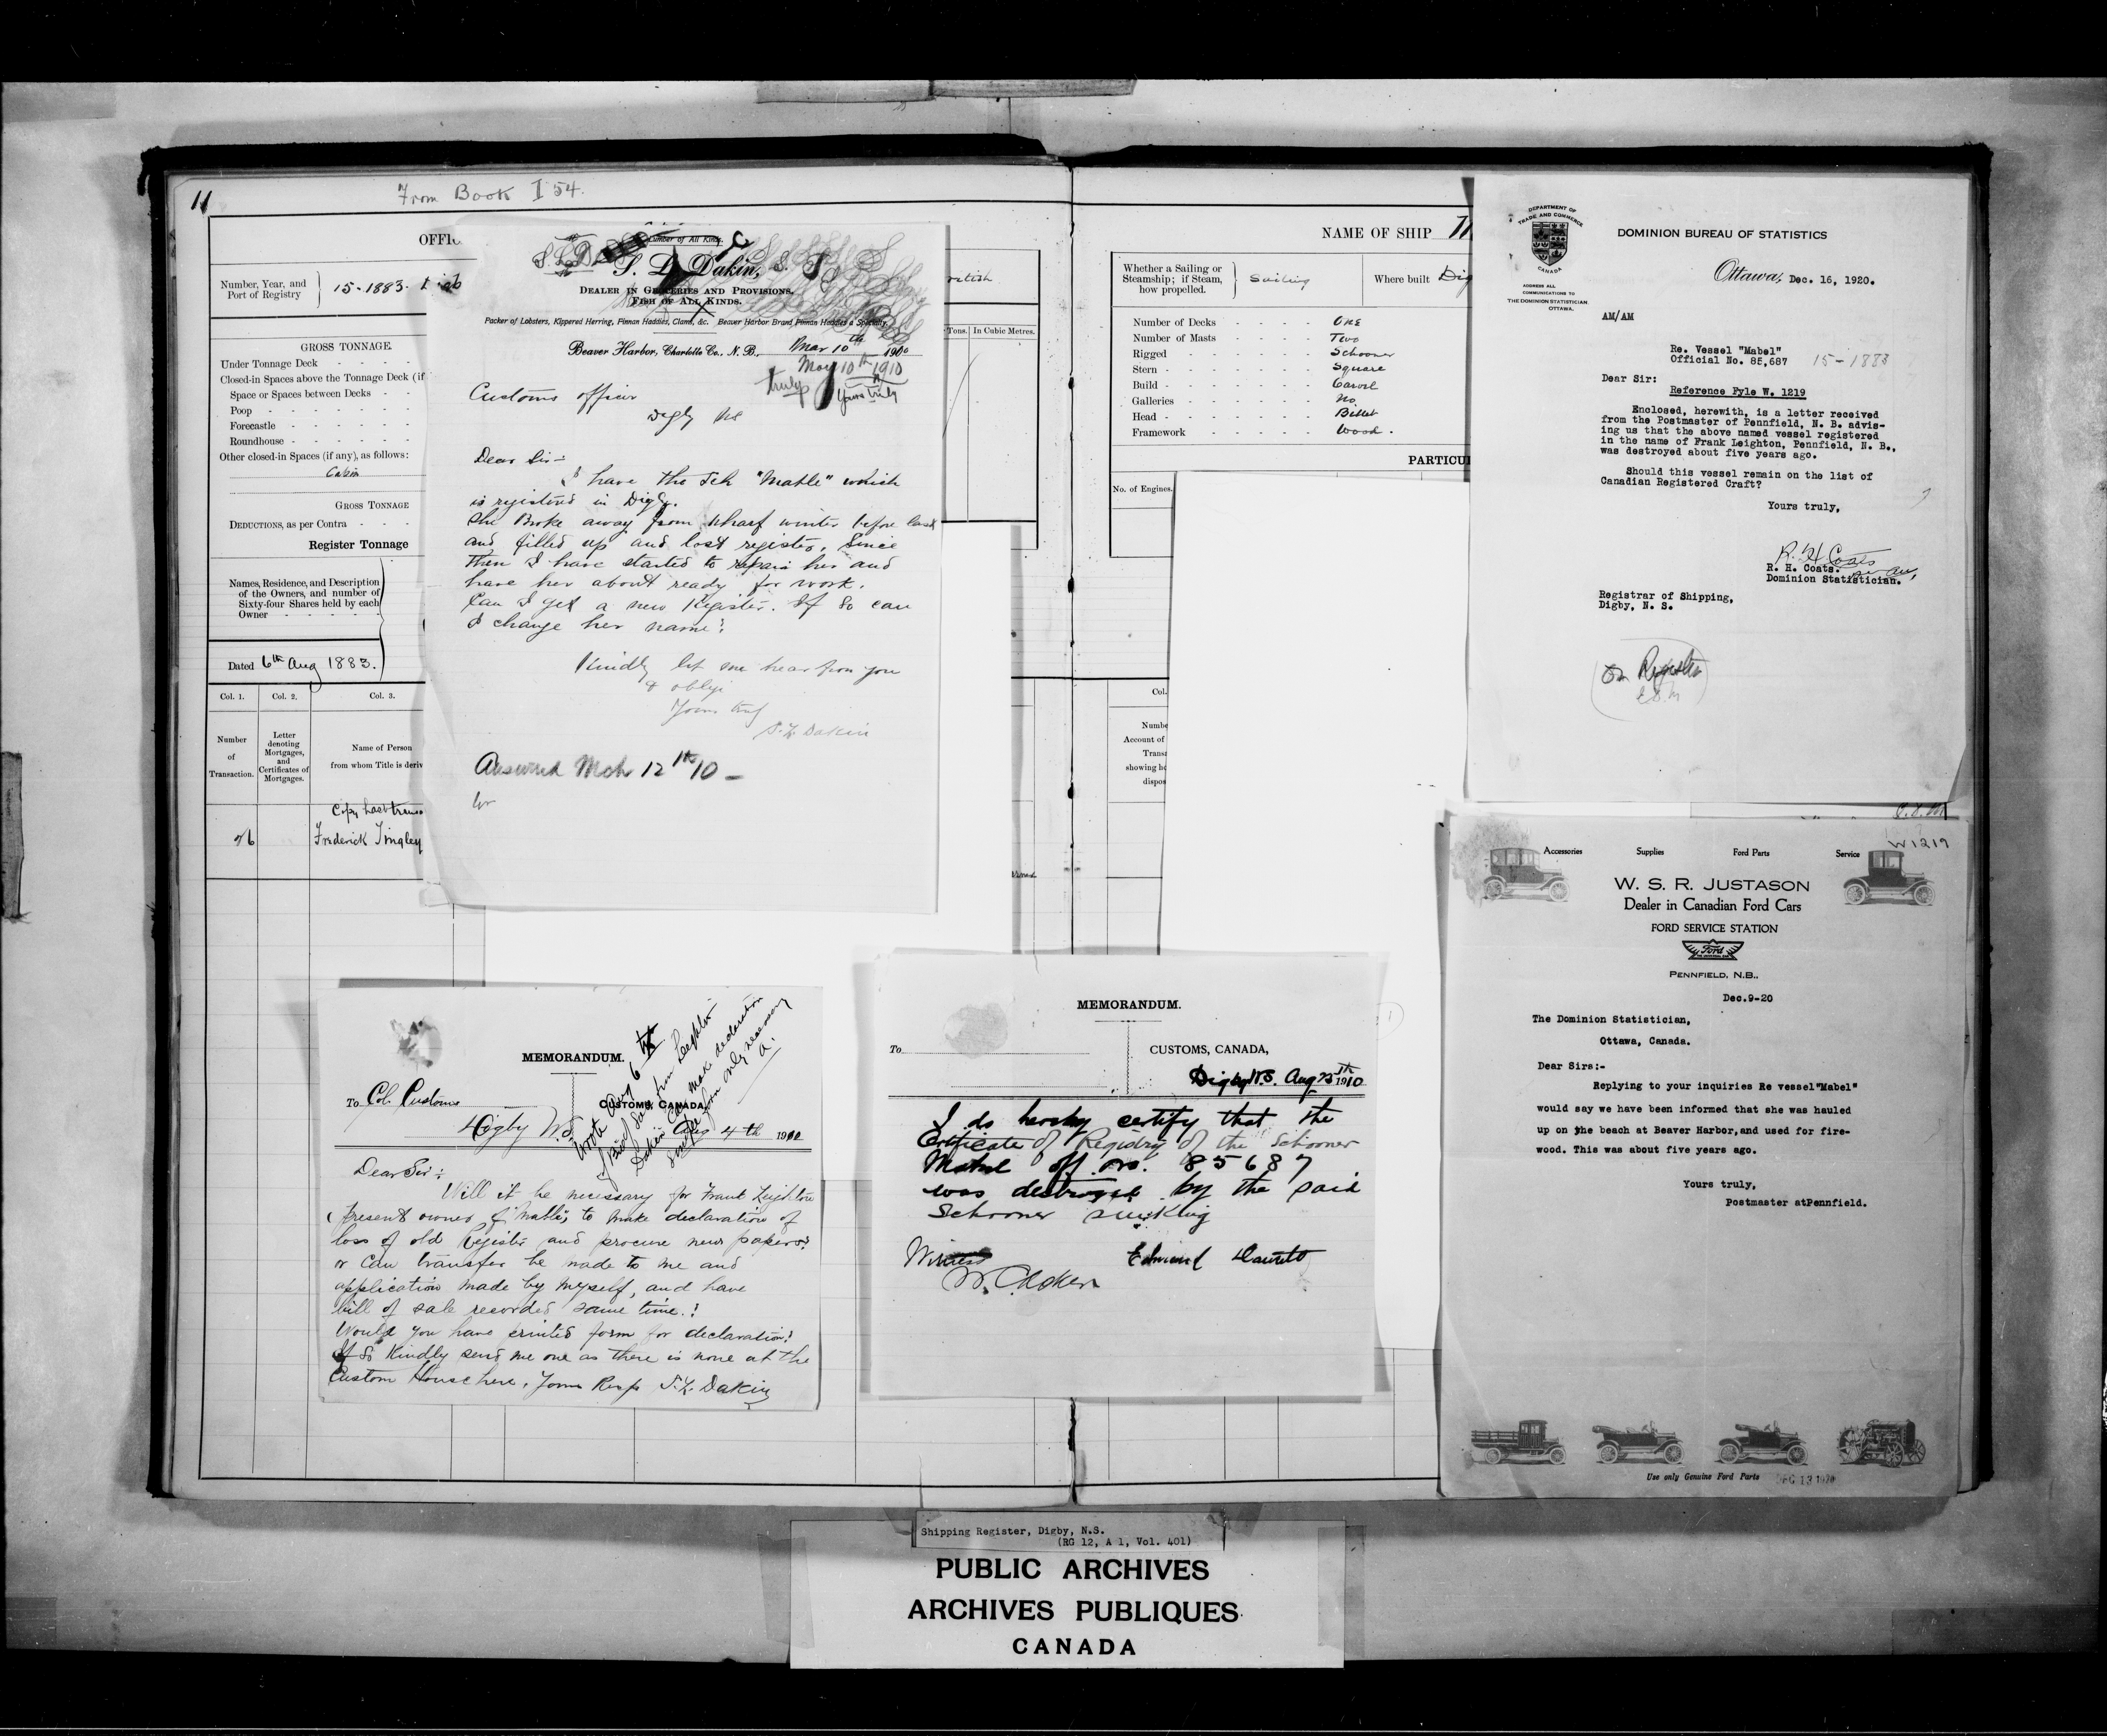 11
From Book I 54.
Number, Year, and
Port of Registry
15-1883.
GROSS TONNAGE.
Under Tonnage Deck
Closed-in Spaces above the Tonnage Deck (if
Space or Spaces between Decks
Poop
Forecastle
Roundhouse
Other closed-in Spaces (if any), as follows:
Cabin
GROSS TONNAGE
DEDUCTIONS, as per Contra
Register Tonnage
Names, Residence, and Description
of the Owners, and number of
Sixty-four Shares held by each
Owner
Dated 6th Aug 1883.
Col. 1.
Col. 2.
Col. 3.
Number
of
Transaction.
Letter
denoting
Mortgages,
and
Certificates of
Mortgages.
Name of Person
from whom Title is deriv
Frederick Tingley
S. L. Dakin,
DEALER IN GROCERIES AND PROVISIONS.
FISH OF ALL KINDS.
Packer of Lobsters, Kippered Herring, Finnan Haddies, Clams, &c. Beaver Harbor Brand Finnan Haddies a Specialty.
Beaver Harbor, Charlotte Co., N. B., Mar 10th 1900
May 10th 1910
truly
Yours truly
Customs officer
Digby NS
Dear Sir:-
I have the Sch "Mable" which
is registered in Digby.
She Broke away from wharf winter before last
and filled up and lost register. Since
then I have started to repair her and
have her about ready for work.
Can I get a new Register. If so can
I change her name?
Kindly let me hear from you
& oblige
Yours truly
S. L. Dakin
Answered Mch 12th 10 -
Tons. In Cubic Metres.
NAME OF SHIP
Whether a Sailing or
Steamship; if Steam,
how propelled.
Sailing
Where built Dig
Number of Decks One
Number of Masts Two
Rigged Schooner
Stern Square
Build Carvel
Galleries No
Head Billet
Framework Wood.
PARTICUL
No. of Engines.
Col.
Numbe
Account of
Transa
showing ho
dispos
DEPARTMENT OF
TRADE AND COMMERCE
CANADA
ADDRESS ALL
COMMUNICATIONS TO
THE DOMINION STATISTICIAN
OTTAWA.
DOMINION BUREAU OF STATISTICS
Ottawa, Dec. 16, 1920.
AM/AM
Re. Vessel "Mabel"
Official No. 85,687 15-1883
Dear Sir:
Reference Fyle W. 1219
Enclosed, herewith, is a letter received
from the Postmaster of Pennfield, N. B. advis-
ing us that the above named vessel registered
in the name of Frank Leighton, Pennfield, N. B.,
was destroyed about five years ago.
Should this vessel remain on the list of
Canadian Registered Craft?
Yours truly,
R. H. Coats
R. H. Coats.
Dominion Statistician.
Registrar of Shipping,
Digby, N. S.
On Register
W1219
Accessories Supplies Ford Parts Service
W. S. R. JUSTASON
Dealer in Canadian Ford Cars
FORD SERVICE STATION
Ford
PENNFIELD, N.B..
Dec.9-20
The Dominion Statistician,
Ottawa, Canada.
Dear Sirs:-
Replying to your inquiries Re vessel"Mabel"
would say we have been informed that she was hauled
up on the beach at Beaver Harbor,and used for fire-
wood. This was about five years ago.
Yours truly,
Postmaster atPennfield.
Use only Genuine Ford Parts
DEC 13 1920
MEMORANDUM.
To Col. Customs
CUSTOMS, CANADA,
Digby N.S. Aug 4th 1910
Wrote Aug 6th
Dear Sir:
Will it be necessary for Frank Leighton
present owner of "Mable", to make declaration of
loss of old Register and procure new papers?
or can transfer be made to me and
application made by myself, and have
bill of sale recorded same time.?
Would you have printed form for declaration?
If So Kindly send me one as there is none at the
Custom House here. Yours Resp S. L. Dakin
MEMORANDUM.
To
CUSTOMS, CANADA,
Digby N.S. Aug 25th 1910
I do hereby certify that the
Certificate of Registry of the Schooner
Mabel off. no. 85687
was destroyed by the said
Schooner sinking
Witness
Edmund
Shipping Register, Digby, N.S.
(RG 12, A 1, Vol. 401)
PUBLIC ARCHIVES
ARCHIVES PUBLIQUES
CANADA